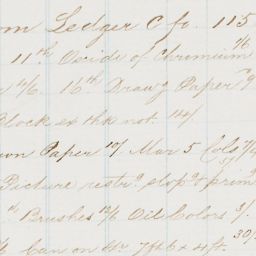 om Ledger C fo. 115
11th Oxide of Chromium 2/6
4/6 16th Drawg Paper 2/9
Block ex thk not 14/.
wn Paper 10/ Mar 5 Cols 7/4
Picture restrg stopg & prim
th Brushes 12/6 Oil Colors 3/.
Can on str 7ft 6 x 4ft. 30/